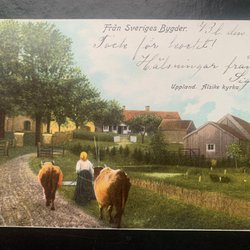 Från Sveriges Bygder.
Tack för kortet!
Hälsningar från
Uppland. Alsike kyrka.